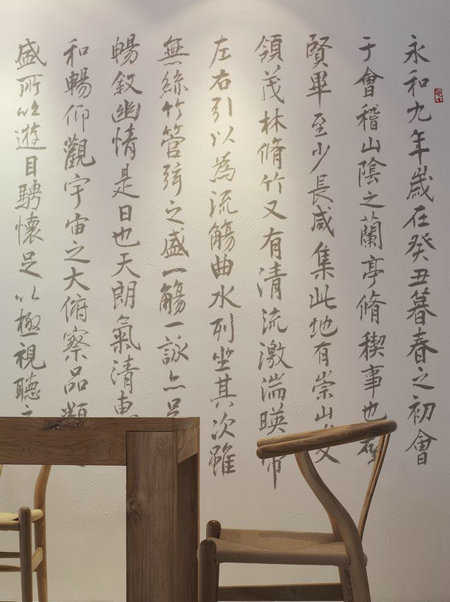 永和九年歲在癸丑暮春之初會
于會稽山陰之蘭亭脩稧事也群
賢畢至少長咸集此地有崇山峻
領茂林脩竹又有清流激湍暎帶
左右引以為流觴曲水列坐其次雖
無絲竹管弦之盛一觴一詠亦足
暢敘幽情是日也天朗氣清惠
和暢仰觀宇宙之大俯察品類
盛所以遊目騁懷足以極視聽